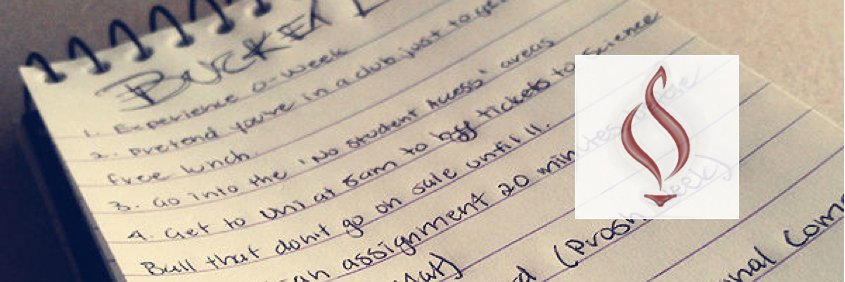 BUCKET
1. Experience O-Week
2. Pretend you're in a club just to get
free lunch.
3. Go into the 'No Student Access' areas
4. Get to Uni at 5am to buy tickets to Science
Ball that don't go on sale until 11.
an assignment 20 minutes
(Prosh Week)